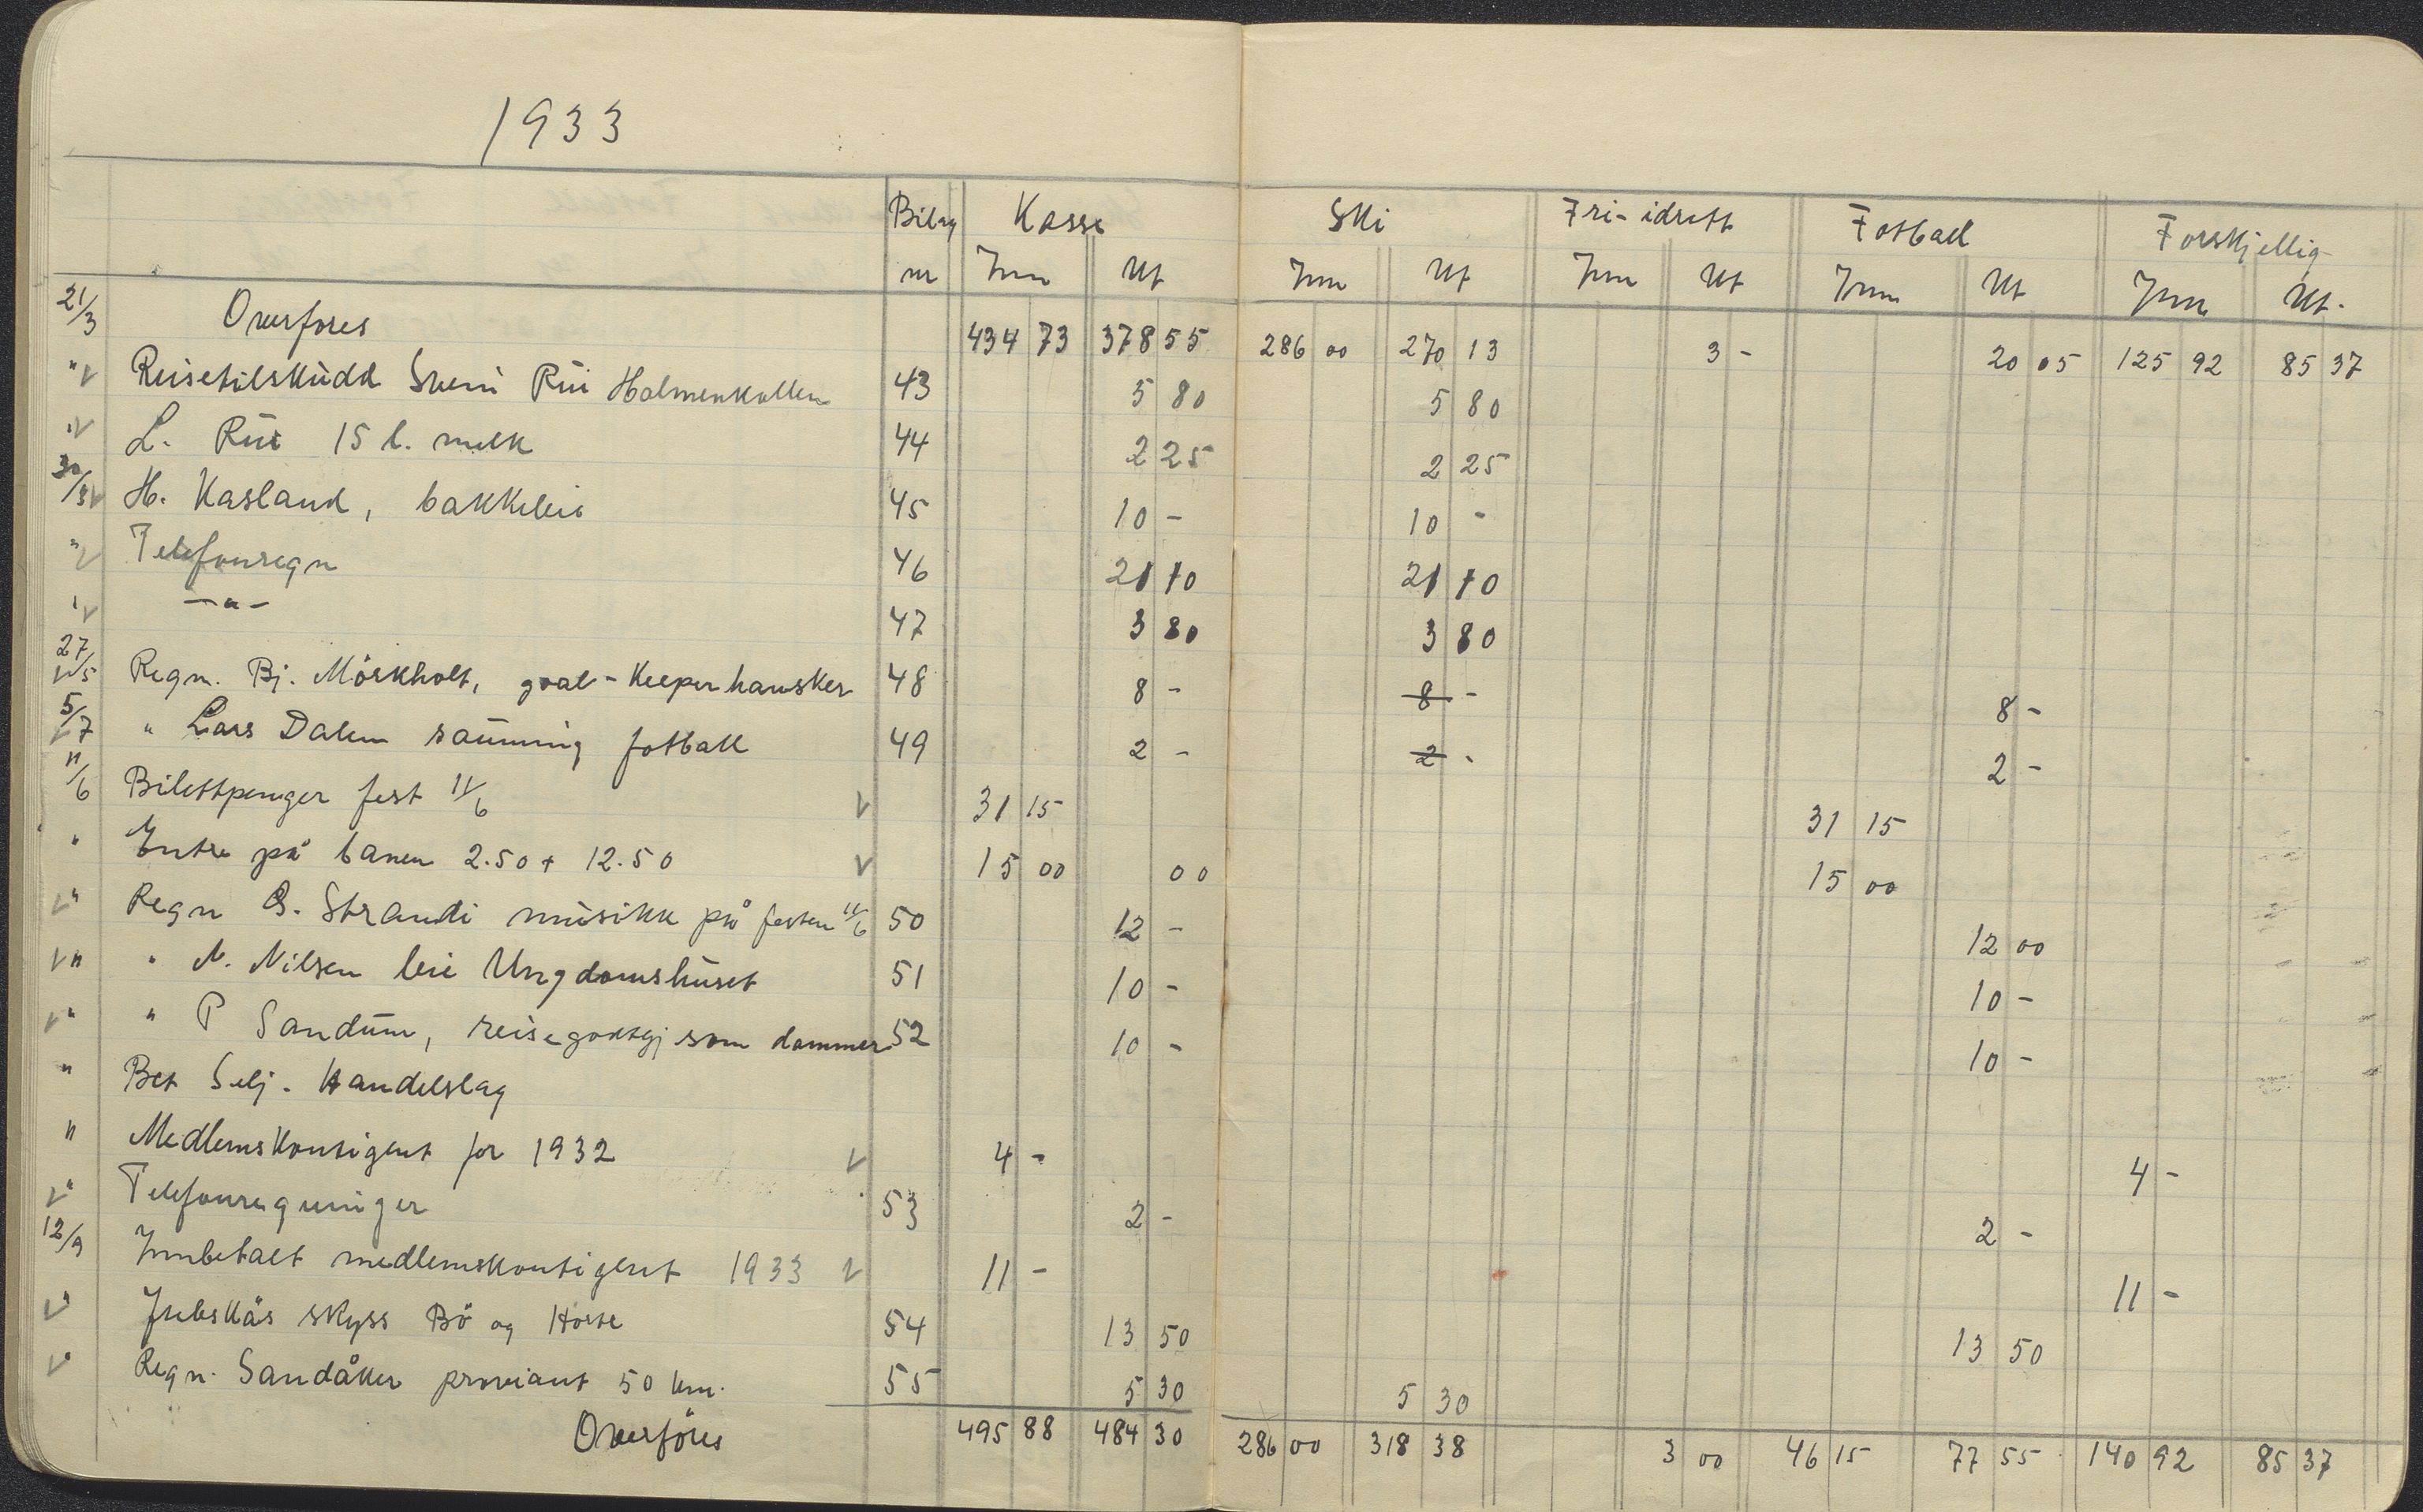 1933
Bilag Kasse Ski Fri-idrett Fotball Forskjellig
nr Inn Ut Inn Ut Inn Ut Inn Ut Inn Ut.
21/3 Overføres 434 73 378 55 286 00 270 13 3 - 20 05 125 92 85 37
" v Reisetilskudd Svein Rui Holmenkollen 43 5 80 5 80
" v L. Rui 15 l. melk 44 2 25 2 25
30/3 v H. Kasland, bakkeleie 45 10 - 10 -
" v Telefonregn 46 21 10 21 10
" v - " - 47 3 80 3 80
27/5 v Regn. Bj. Mörkholt, goal-keeperhansker 48 8 - 8 - 8 -
5/7 v " Lars Dalen sauming fotball 49 2 - 2 - 2 -
11/6 Bilettpenger fest 11/6 v 31 15 31 15
" Entre på banen 2.50 + 12.50 v 15 00 00 15 00
v " Regn G. Strandi musikk på festen 11/6 50 12 - 12 00
v " " N. Nilsen leie Ungdomshuset 51 10 - 10 -
v " " P Sandum, reisegodtgj som dommer 52 10 - 10 -
" Bet Selj. Handelslag
" Medlemskontigent for 1932 v 4 - 4 -
v " Telefonregninger 53 2 - 2 -
12/9 Innbetalt medlemskontigent 1933 v 11 - 11 -
v " skyss Bö og Hörte 54 13 50 13 50
v " Regn. Sandåker proviant 50 km. 55 5 30 5 30
Overföres 495 88 484 30 286 00 318 38 3 00 46 15 77 55 140 92 85 37